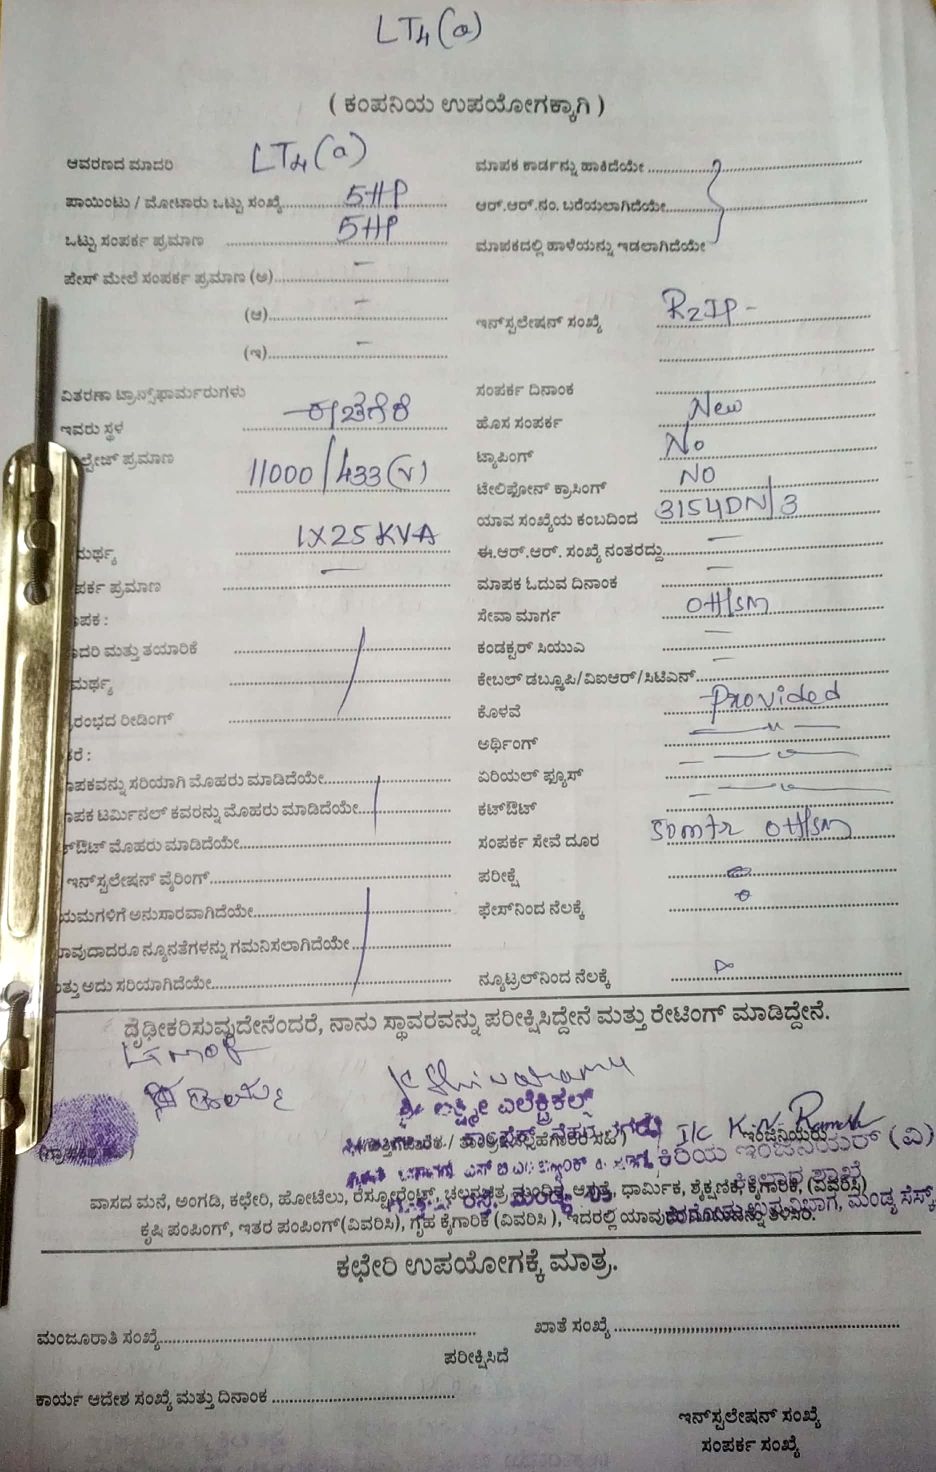 LT4(a)
( ಕಂಪನಿಯ ಉಪಯೋಗಕ್ಕಾಗಿ )
ಆವರಣದ ಮಾದರಿ LT4(a)
ಮಾಪಕ ಕಾರ್ಡನ್ನು ಹಾಕಿದೆಯೇ
ಪಾಯಿಂಟು / ಮೋಟಾರು ಒಟ್ಟು ಸಂಖ್ಯೆ 5HP
ಆರ್.ಆರ್.ನಂ. ಬರೆಯಲಾಗಿದೆಯೇ
ಒಟ್ಟು ಸಂಪರ್ಕ ಪ್ರಮಾಣ 5HP
ಮಾಪಕದಲ್ಲಿ ಹಾಳೆಯನ್ನು ಇಡಲಾಗಿದೆಯೇ
ಪೇಸ್ ಮೇಲೆ ಸಂಪರ್ಕ ಪ್ರಮಾಣ (ಅ) –
(ಆ) –
ಇನ್‌ಸ್ಟಲೇಷನ್ ಸಂಖ್ಯೆ R2IP -
(ಇ) –
ವಿತರಣಾ ಟ್ರಾನ್ಸ್‌ಫಾರ್ಮರುಗಳು
ಸಂಪರ್ಕ ದಿನಾಂಕ
ಇವರು ಸ್ಥಳ
ಹೊಸ ಸಂಪರ್ಕ New
ಲ್ಟೇಜ್ ಪ್ರಮಾಣ 11000/433(V)
ಟ್ಯಾಪಿಂಗ್ No
ಟೇಲಿಫೋನ್ ಕ್ರಾಸಿಂಗ್ NO
ಯಾವ ಸಂಖ್ಯೆಯ ಕಂಬದಿಂದ 3154DN/3
ಮರ್ಥ್ಯ 1X25 KVA
ಈ.ಆರ್.ಆರ್. ಸಂಖ್ಯೆ ನಂತರದ್ದು –
ಪರ್ಕ ಪ್ರಮಾಣ –
ಮಾಪಕ ಓದುವ ದಿನಾಂಕ –
ಾಪಕ :
ಸೇವಾ ಮಾರ್ಗ OH/SM
ಾದರಿ ಮತ್ತು ತಯಾರಿಕೆ
ಕಂಡಕ್ಟರ್ ಸಿಯುಎ –
ಮರ್ಥ್ಯ
ಕೇಬಲ್ ಡಬ್ಲ್ಯೂಪಿ/ವಿಐಆರ್/ಸಿಟಿಎನ್ –
ರಂಭದ ರೀಡಿಂಗ್
ಕೊಳವೆ Provided
ಅರ್ಥಿಂಗ್ — " —
ಕರೆ :
ಏರಿಯಲ್ ಫ್ಯೂಸ್
ಾಪಕವನ್ನು ಸರಿಯಾಗಿ ಮೊಹರು ಮಾಡಿದೆಯೇ
ಕಟ್‌ಔಟ್
ಾಪಕ ಟರ್ಮಿನಲ್ ಕವರನ್ನು ಮೊಹರು ಮಾಡಿದೆಯೇ
ಸಂಪರ್ಕ ಸೇವೆ ದೂರ 50mtr OH/SM
ಟ್‌ಔಟ್ ಮೊಹರು ಮಾಡಿದೆಯೇ
ಪರೀಕ್ಷೆ
ಇನ್‌ಸ್ಟಲೇಷನ್ ವೈರಿಂಗ್
ಫೇಸ್‌ನಿಂದ ನೆಲಕ್ಕೆ
ಯಮಗಳಿಗೆ ಅನುಸಾರವಾಗಿದೆಯೇ
ಾವುದಾದರೂ ನ್ಯೂನತೆಗಳನ್ನು ಗಮನಿಸಲಾಗಿದೆಯೇ
ನ್ಯೂಟ್ರಲ್‌ನಿಂದ ನೆಲಕ್ಕೆ
ತ್ತು ಅದು ಸರಿಯಾಗಿದೆಯೇ
ದೃಢೀಕರಿಸುವುದೇನೆಂದರೆ, ನಾನು ಸ್ಥಾವರವನ್ನು ಪರೀಕ್ಷಿಸಿದ್ದೇನೆ ಮತ್ತು ರೇಟಿಂಗ್ ಮಾಡಿದ್ದೇನೆ.
LTMOF
K Shivaramu
ಶ್ರೀ ಲಕ್ಷ್ಮೀ ಎಲೆಕ್ಟ್ರಿಕಲ್ಸ್
I/C
ಕಿರಿಯ ಇಂಜಿನಿಯರ್ (ವಿ)
ವಾಸದ ಮನೆ, ಅಂಗಡಿ, ಕಛೇರಿ, ಹೋಟೆಲು, ರೆಸ್ಟೋರೆಂಟ್, ಚಲನಚಿತ್ರ ಮಂದಿರ, ಆಸ್ಪತ್ರೆ, ಧಾರ್ಮಿಕ, ಶೈಕ್ಷಣಿಕ, ಕೈಗಾರಿಕೆ, (ವಿವರಿಸಿ)
ಉಪವಿಭಾಗ, ಮಂಡ್ಯ
ಕೃಷಿ ಪಂಪಿಂಗ್, ಇತರ ಪಂಪಿಂಗ್(ವಿವರಿಸಿ), ಗೃಹ ಕೈಗಾರಿಕೆ (ವಿವರಿಸಿ), ಇದರಲ್ಲಿ
ಕಛೇರಿ ಉಪಯೋಗಕ್ಕೆ ಮಾತ್ರ.
ಮಂಜೂರಾತಿ ಸಂಖ್ಯೆ
ಖಾತೆ ಸಂಖ್ಯೆ
ಪರೀಕ್ಷಿಸಿದೆ
ಕಾರ್ಯ ಆದೇಶ ಸಂಖ್ಯೆ ಮತ್ತು ದಿನಾಂಕ
ಇನ್‌ಸ್ಟಲೇಷನ್ ಸಂಖ್ಯೆ
ಸಂಪರ್ಕ ಸಂಖ್ಯೆ